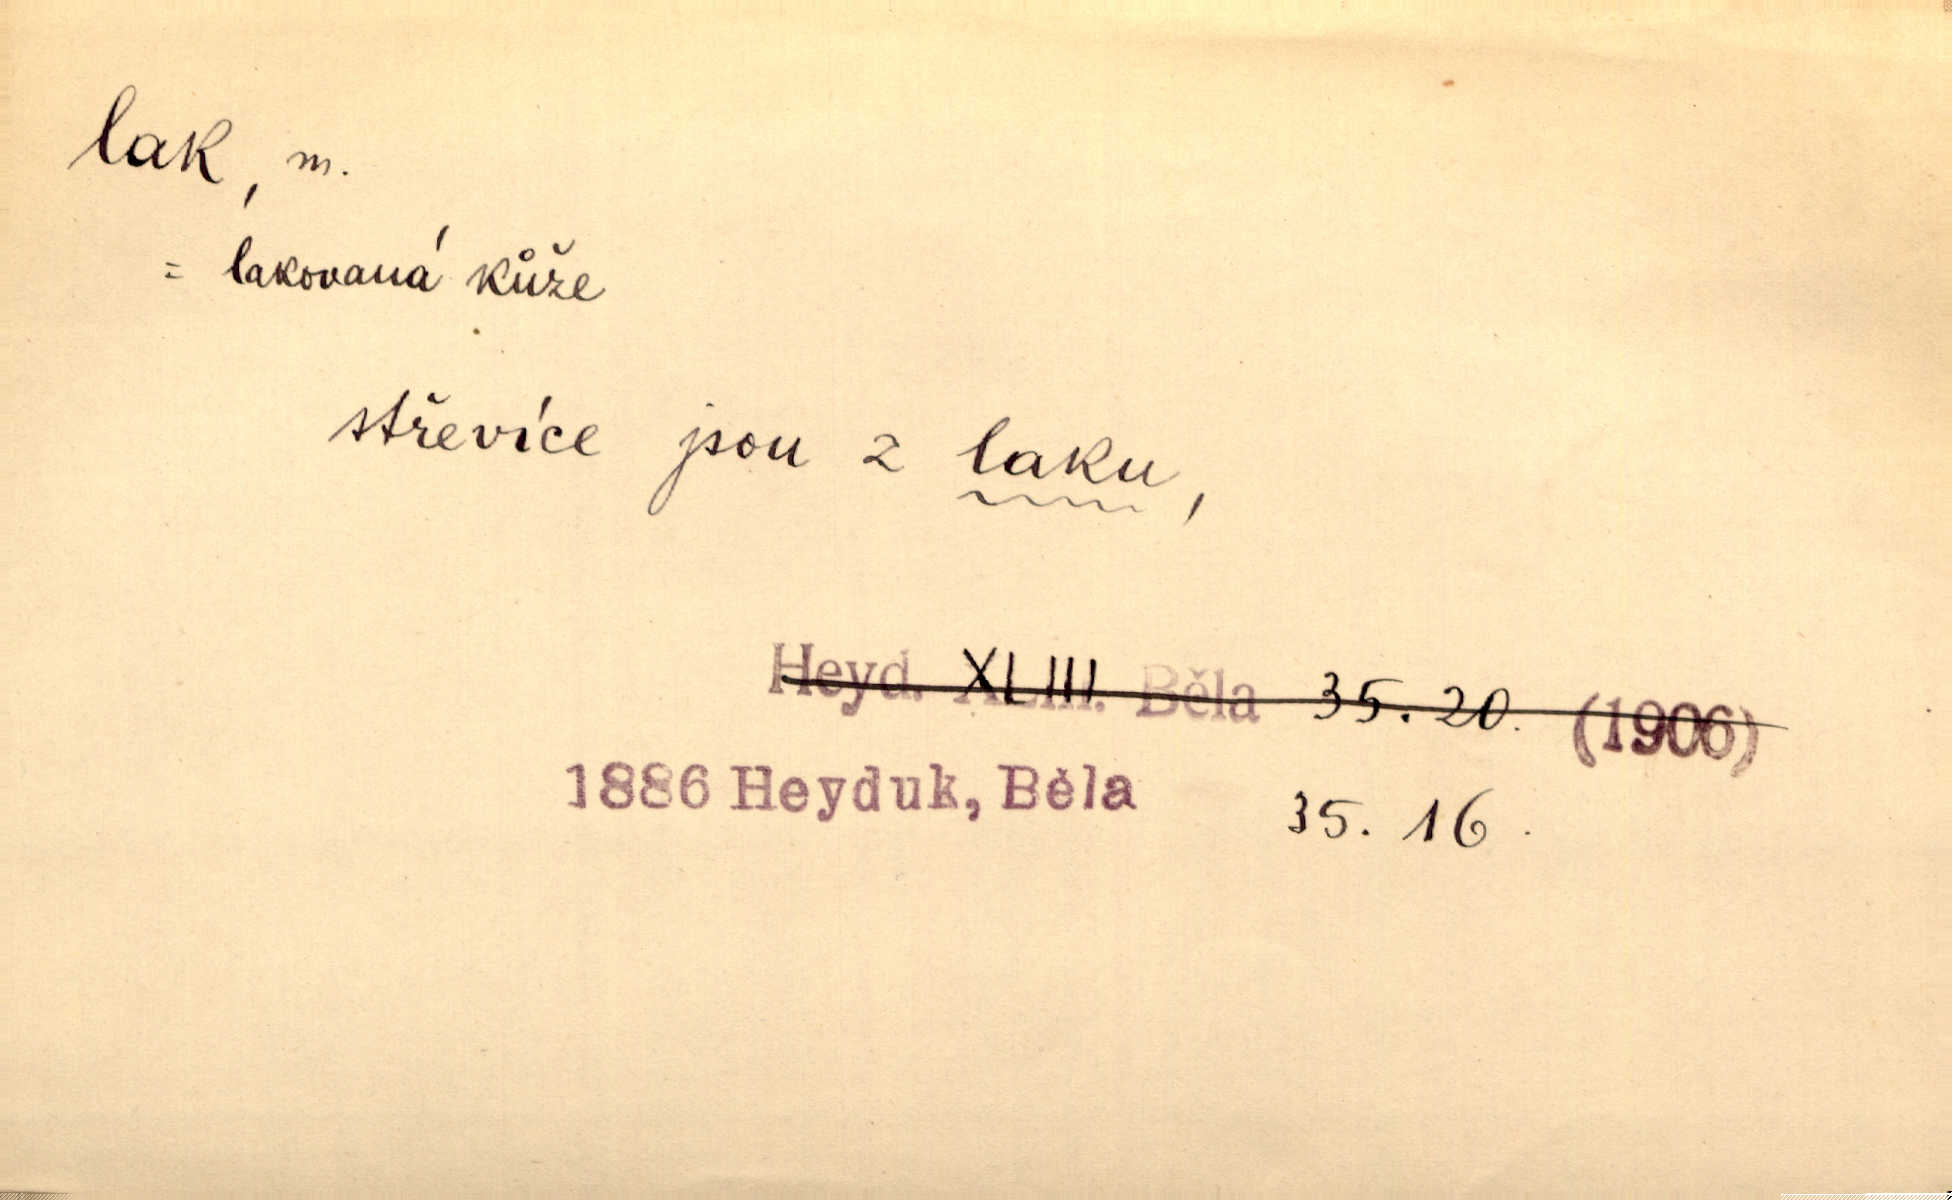 lak, m.
= lakovaná kůže
střevíce jsou z laku,
Heyd. XLIII. Běla 35. 20. (1906)
1886 Heyduk, Běla 35. 16.